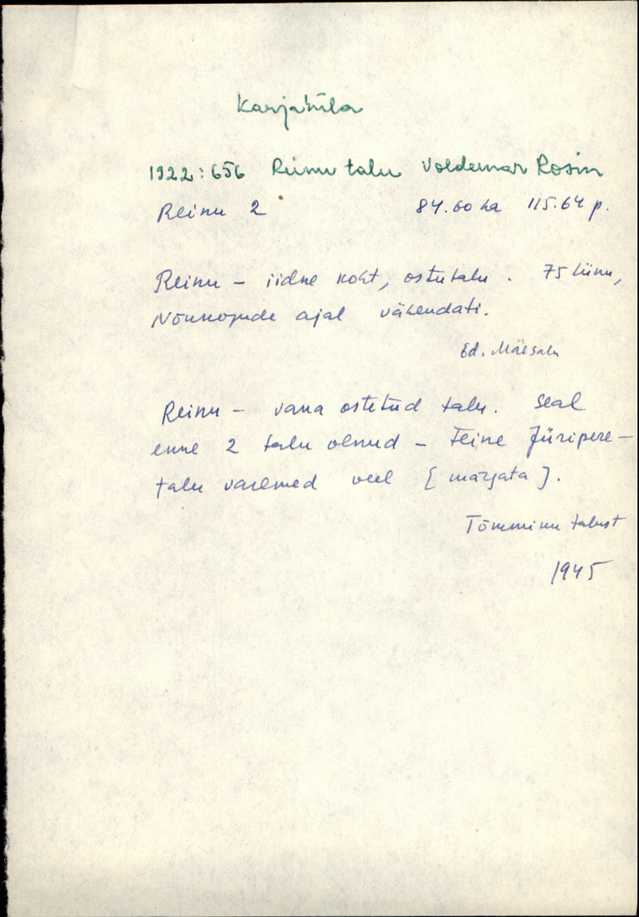 Karjaküla
1922:656 Reinu talu Voldemar Rosin
Reinu 2 84.60 ha 115.64 p.
Reinu – iidne koht, ostutalu. 75 tiinu,
Nõunogude ajal vähendati.
Ed. Mäesalu
Reinu – vana ostetud talu. Seal
enne 2 talu olnud – Teine Jüripere-
talu varemed veel [märgata].
Tõnminu talust
1945